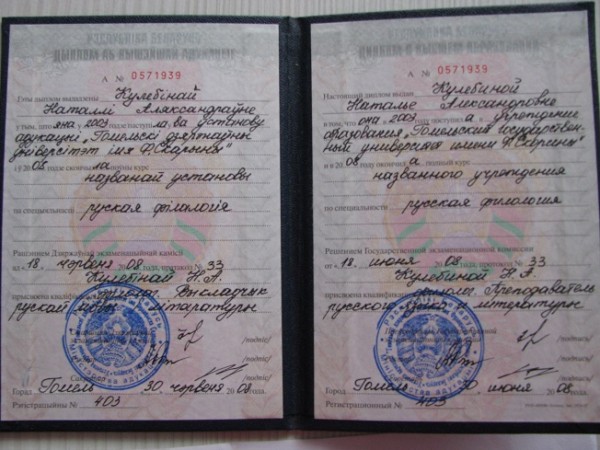 А № 0571939
Гэты дыплом выдадзены Кулебінай
Наталлі Аляксандраўне
у тым, што яна у 2003 годзе паступіла ва установу
адукацыі "Гомельскі дзяржаўны
ўніверсітэт імя Ф. Скарыны"
і ў 2008 годзе скончыла поўны курс
названай установы
па спецыяльнасці руская філалогія
Рашэннем Дзяржаўнай экзаменацыйнай камісіі
ад «18» чэрвеня 2008 года, пратакол № 33
Кулебінай Н.А.
прысвоена кваліфікацыя філолаг. Выкладчык
рускай мовы літаратуры
/подпіс/
/подпіс/
Горад Гомель 30 чэрвеня 2008 года.
Рэгістрацыйны № 403
А № 0571939
Настоящий диплом выдан Кулебиной
Наталье Александровне
в том, что она в 2003 году поступила в учреждение
образования "Гомельский государствен-
ный университет имени Ф. Скорины"
и в 2008 году окончила полный курс
названного учреждения
по специальности русская филология
Решением Государственной экзаменационной комиссии
от «18» июня 2008 года, протокол № 33
Кулебиной Н.А.
присвоена квалификация филолог. Преподаватель
русского языка литературы
/подпись/
/подпись/
Город Гомель 30 июня 2008 года.
Регистрационный № 403